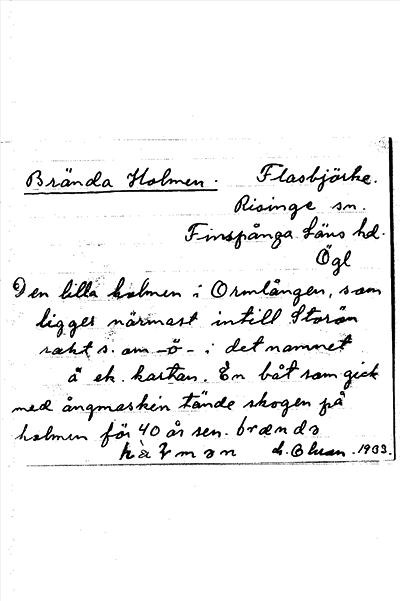 Brända Holmen. Flasbjörke.
Risinge sn.
Finspånga Läns hd.
Ögl
Den lilla holmen i Ormlången, som
ligger närmast intill Storön
rakt s. om -ö- i det namnet
å ek. kartan. En båt som gick
med ångmaskin tände skogen på
holmen för 40 år sen. brændə
1933.